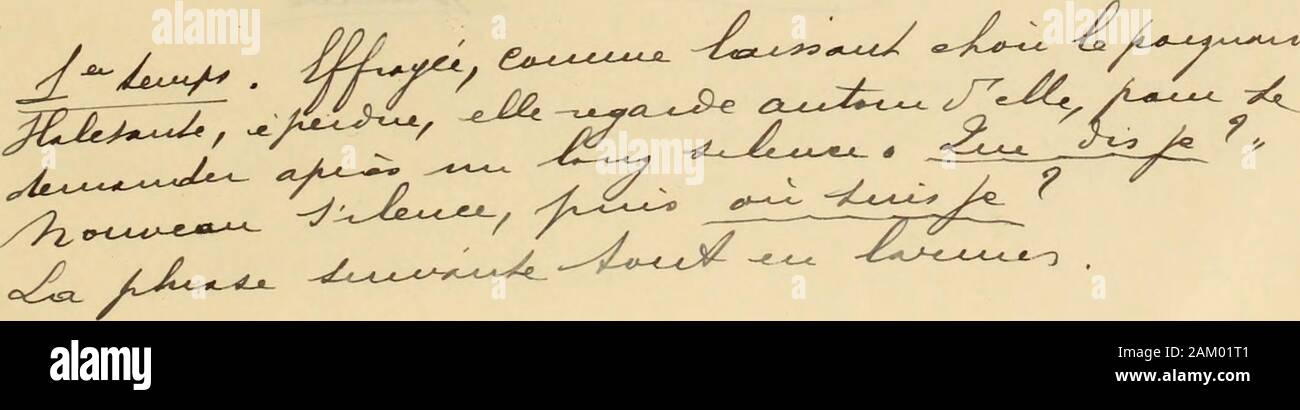 1er temps. Effrayée, comme laissant choir le poignard
Haletante, éperdue, elle regarde autour d'elle, pour se
demander après un long silence. Que dis je ? "
Nouveau silence, puis où suis je ?
La phrase suivante tout en larmes.
alamy
Image ID: 2AM01T1
www.alamy.com